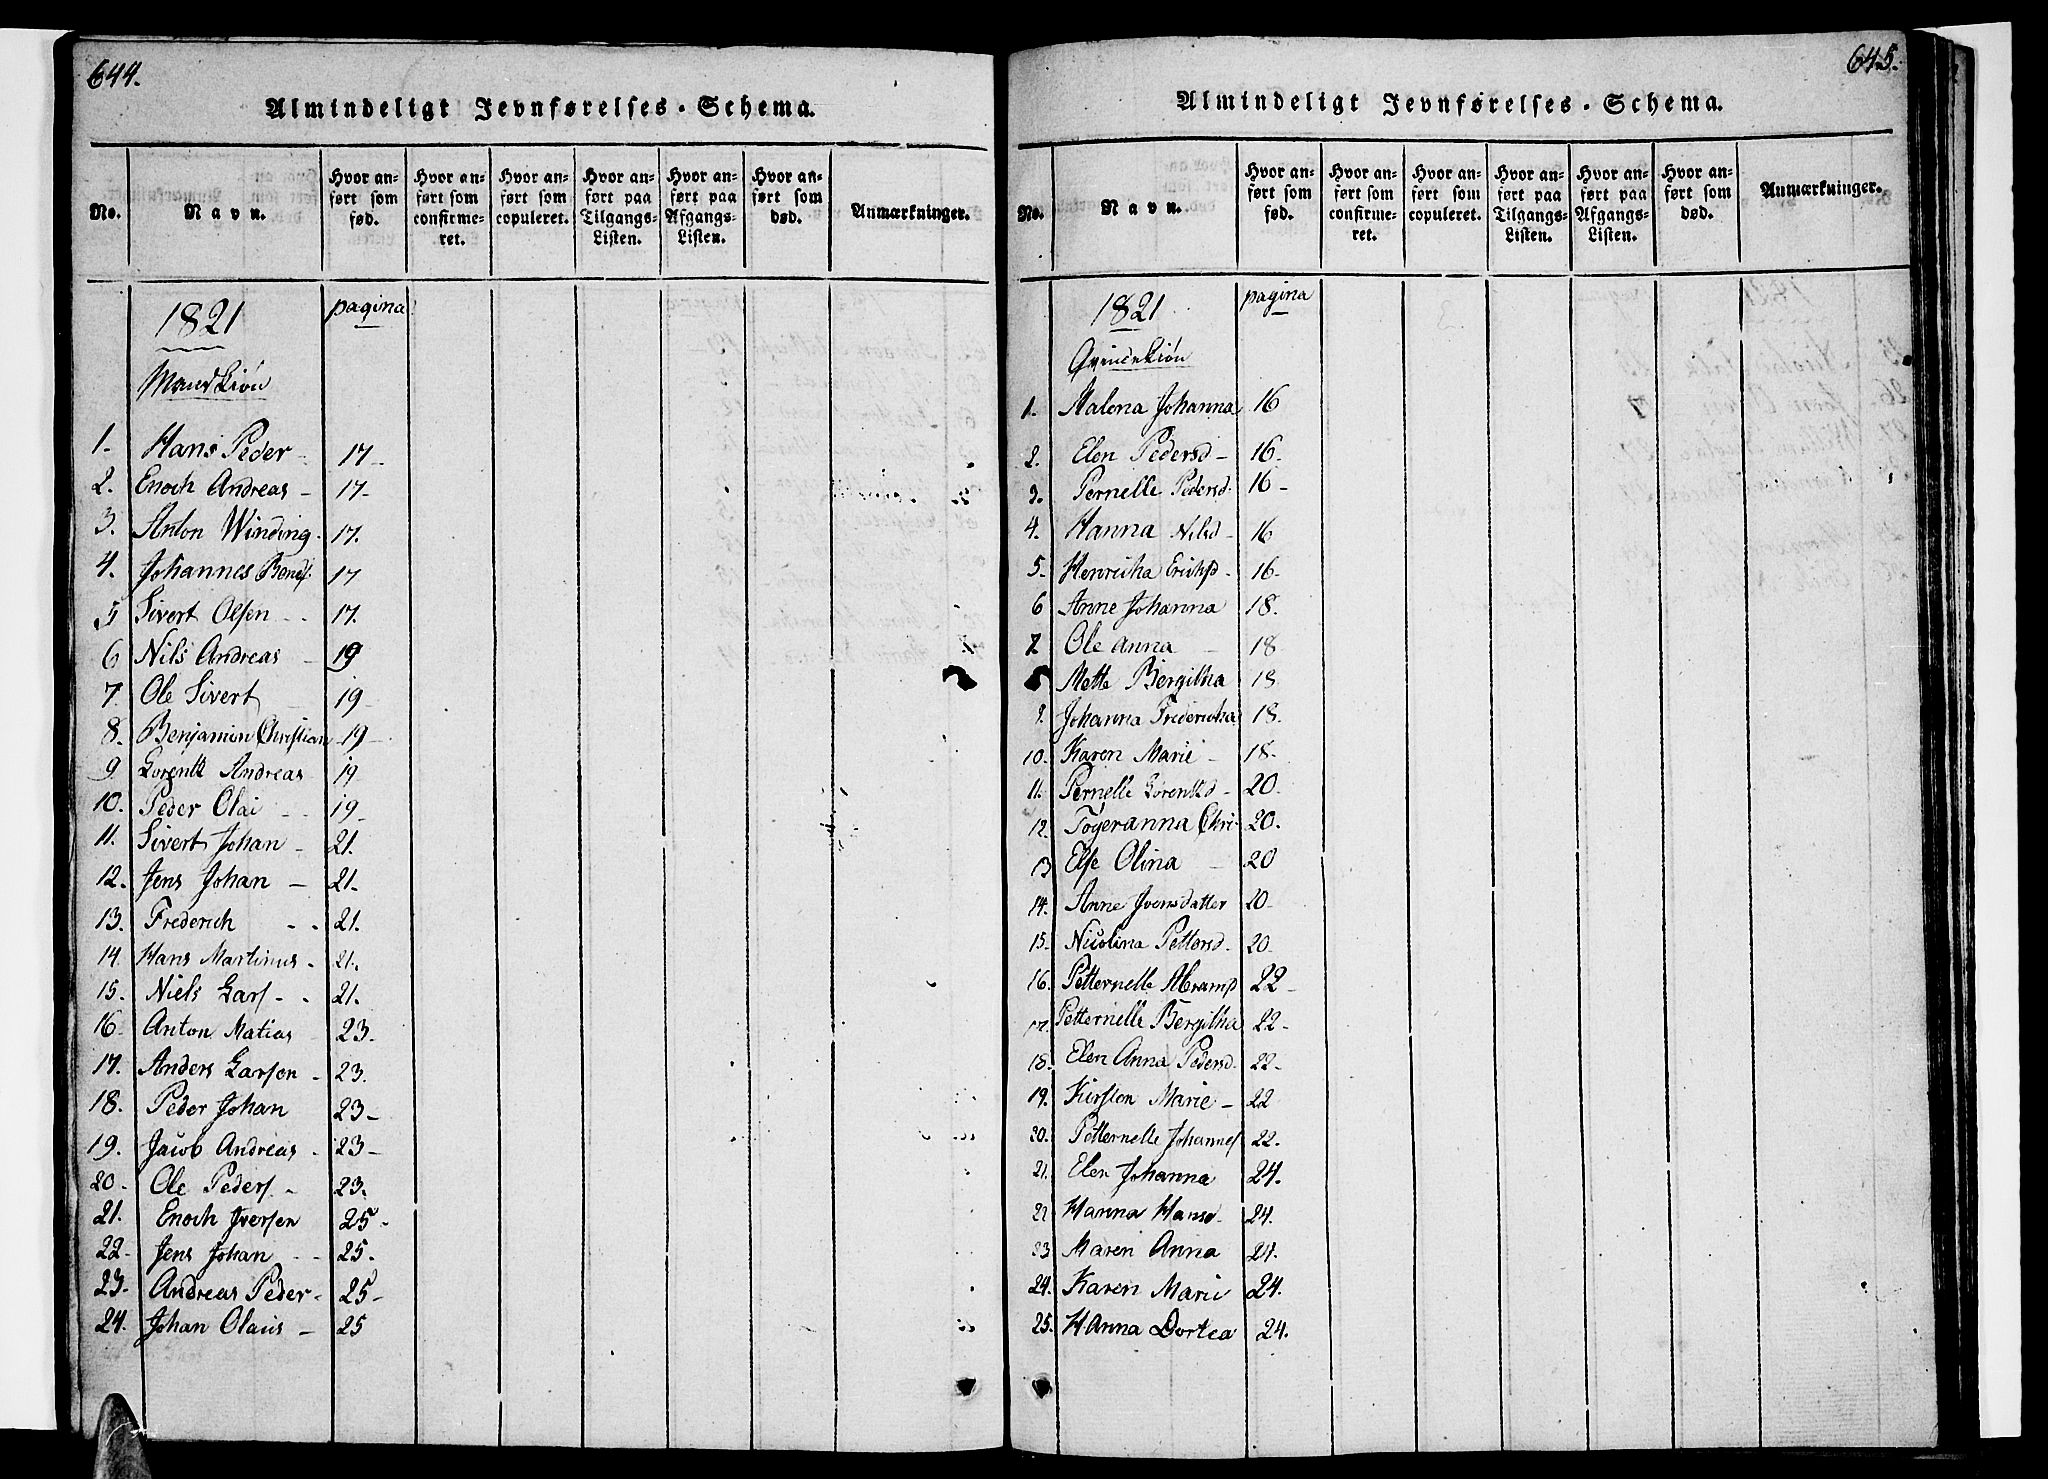 644.
Almindeligt Jevnførelses-Schema.
No.
Navn.
Hvor an-
ført som
fød.
Hvor an-
ført som
confirme-
ret.
Hvor an-
ført som
copuleret.
Hvor an-
ført paa
Tilgangs-
Listen.
Hvor an-
ført paa
Afgangs-
Listen.
Hvor an-
ført som
død.
Anmærkninger.
1821 pagina
Mandkiøn
1. Hans Peder 17
2. Enoch Andreas 17
3. Anton Winding 17.
4. Johannes 17
5 Sivert Olsen 17.
6 Nils Andreas 19
7. Ole Sivert 19
8. Benjamin Christian 19
9. Lorentz Andreas 19
10. Peder Olai 19
11. Sivert Johan 21.
12. Jens Johan 21.
13. Frederich 21.
14 Hans Martinus 21.
15. Niels Lars 21.
16 Anton Matias 23.
17. Anders Larsen 23.
18. Peder Johan 23
19. Jacob Andreas 23
20 Ole Peders 23.
21. Enoch Iversen 25
22 Jens Johan 25.
23. Andreas Peder 25
24. Johan Olaus 25
645.
Almindeligt Jevnførelses-Schema.
No.
Navn.
Hvor an-
ført som
fød.
Hvor an-
ført som
confirme-
ret.
Hvor an-
ført som
copuleret.
Hvor an-
ført paa
Tilgangs-
Listen.
Hvor an-
ført paa
Afgangs-
Listen.
Hvor an-
ført som
død.
Anmærkninger.
1821 pagina
Qvindekiøn
1. Malena Johanna 16
2. Elen Pedersd 16
3. Pernelle Pedersd. 16
4. Hanna Nilsd 16
5. Henricha Erichsd 16
6 Anne Johanna 18.
7 Ole anna 18
Mette Bergitha 18
9. Johanna Fredericha 18.
10. Karen Marie 18
11. Pernelle Lorentzd 20
12. Tøgeranna Chri 20.
13 Else Olina 20
14. Anne Iversdatter 20
15. Nicolina Pettersd. 20
16. Petternelle Abramsd 22
17. Petternelle Bergitha 22
18. Elen Anna Pedersd. 22
19. Kirsten Marie 22
20. Petternelle Johannes 22.
21. Elen Johanna 24.
22 Hanna Hansd. 24.
23 Maren Anna 24.
24. Karen Marie 24.
25. Hanna Dortea 24.